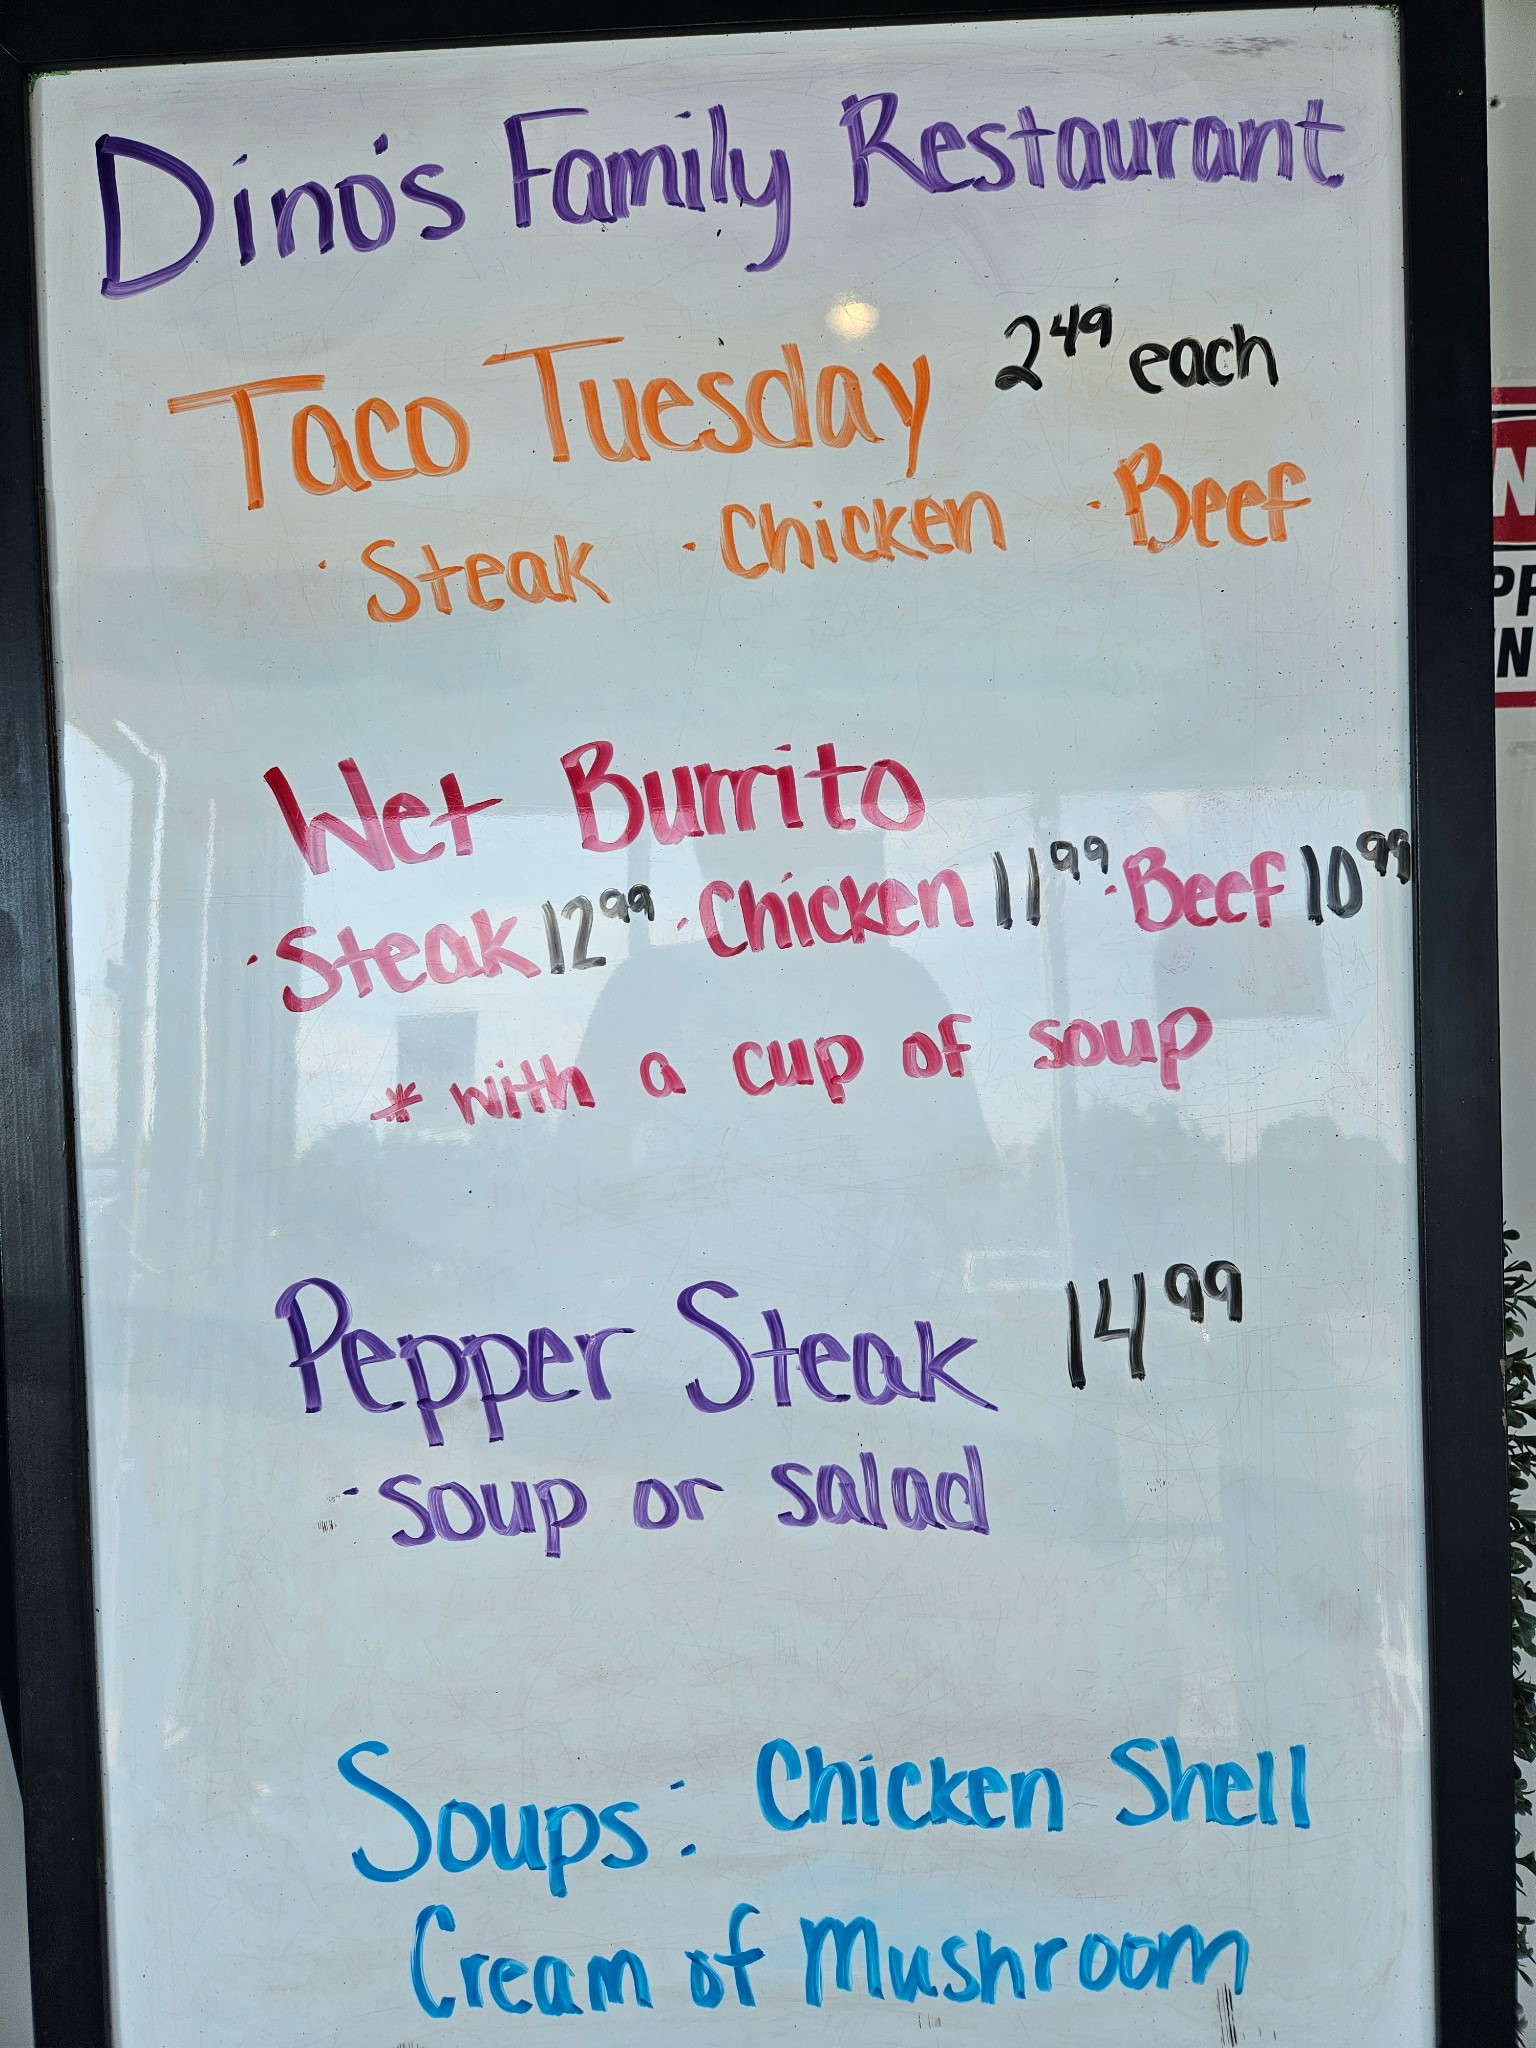 Dino's Family Restaurant
Taco Tuesday 2⁴⁹ each
· Steak · Chicken · Beef
Wet Burrito
· Steak 12⁹⁹ · Chicken 11⁹⁹ · Beef 10⁹⁹
* with a cup of soup
Pepper Steak 14⁹⁹
· soup or salad
Soups: Chicken Shell
Cream of Mushroom